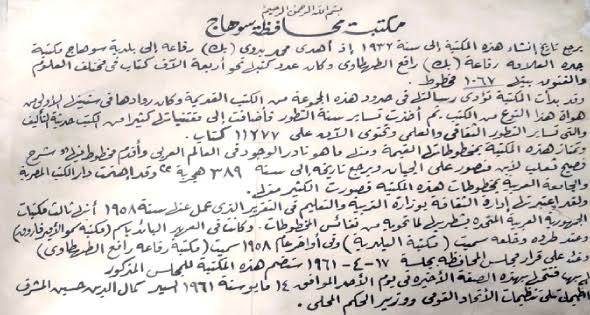 بسم الله الرحمن الرحيم
مكتبة محافظة سوهاج
يرجع تاريخ إنشاء هذه المكتبة إلى سنة ١٩٣٢ إذ أهدى محمد بدوى (بك) رفاعة إلى بلدية سوهاج مكتبة
جده العلامة رفاعة (بك) رافع الطهطاوى وكان عدد كتبها نحو أربعة آلاف كتاب فى مختلف العلوم
والفنون بينها ١٠٦٧ مخطوط.
وقد بدأت المكتبة تؤدى رسالتها فى حدود هذه المجموعة من الكتب القديمة وكان روادها فى سنيها الأولى من
هواة هذا النوع من الكتب. ثم أخذت تساير سنة التطور فأضافت إلى مقتنياتها كثيرا من الكتب حديثة التأليف
والتى تساير التطور الثقافى والعلمى وتحتوى الآن على ١١٢٧٧ كتاب.
وتمتاز هذه المكتبة بمخطوطاتها القيمة ومنها ما هو نادر الوجود فى العالم العربى وأقدم مخطوط فيها شرح
فصيح ثعلب لابن منصور على الجبان ويرجع تاريخه إلى سنة ٣٨٩ هجرية وقد اهتمت دار الكتب المصرية
والجامعة العربية بمخطوطات هذه المكتبة فصورت الكثير منها.
ولقد اعتبرتها إدارة الثقافة بوزارة التربية والتعليم فى التقرير الذى عمل عنها سنة ١٩٥٨ أنها ثالث مكتبات
الجمهورية العربية المتحدة بالنظر لما تحويه من نفائس المخطوطات. وكانت فى العهد البائد باسم (مكتبة سمو الأمير فاروق)
وعند طرده وخلعه سميت (مكتبة البلدية) وفى أواخر عام ١٩٥٨ سميت (مكتبة رفاعة رافع الطهطاوى)
وبناء على قرار مجلس المحافظة بجلسة ١٧-٤-١٩٦١ بضم هذه المكتبة للمجلس المذكور
بهذه الصفة الأخيرة فى يوم الأحد الموافق ١٤ مايو سنة ١٩٦١ السيد كمال الدين حسين المشرف
على تنظيمات الاتحاد القومى ووزير الحكم المحلى.